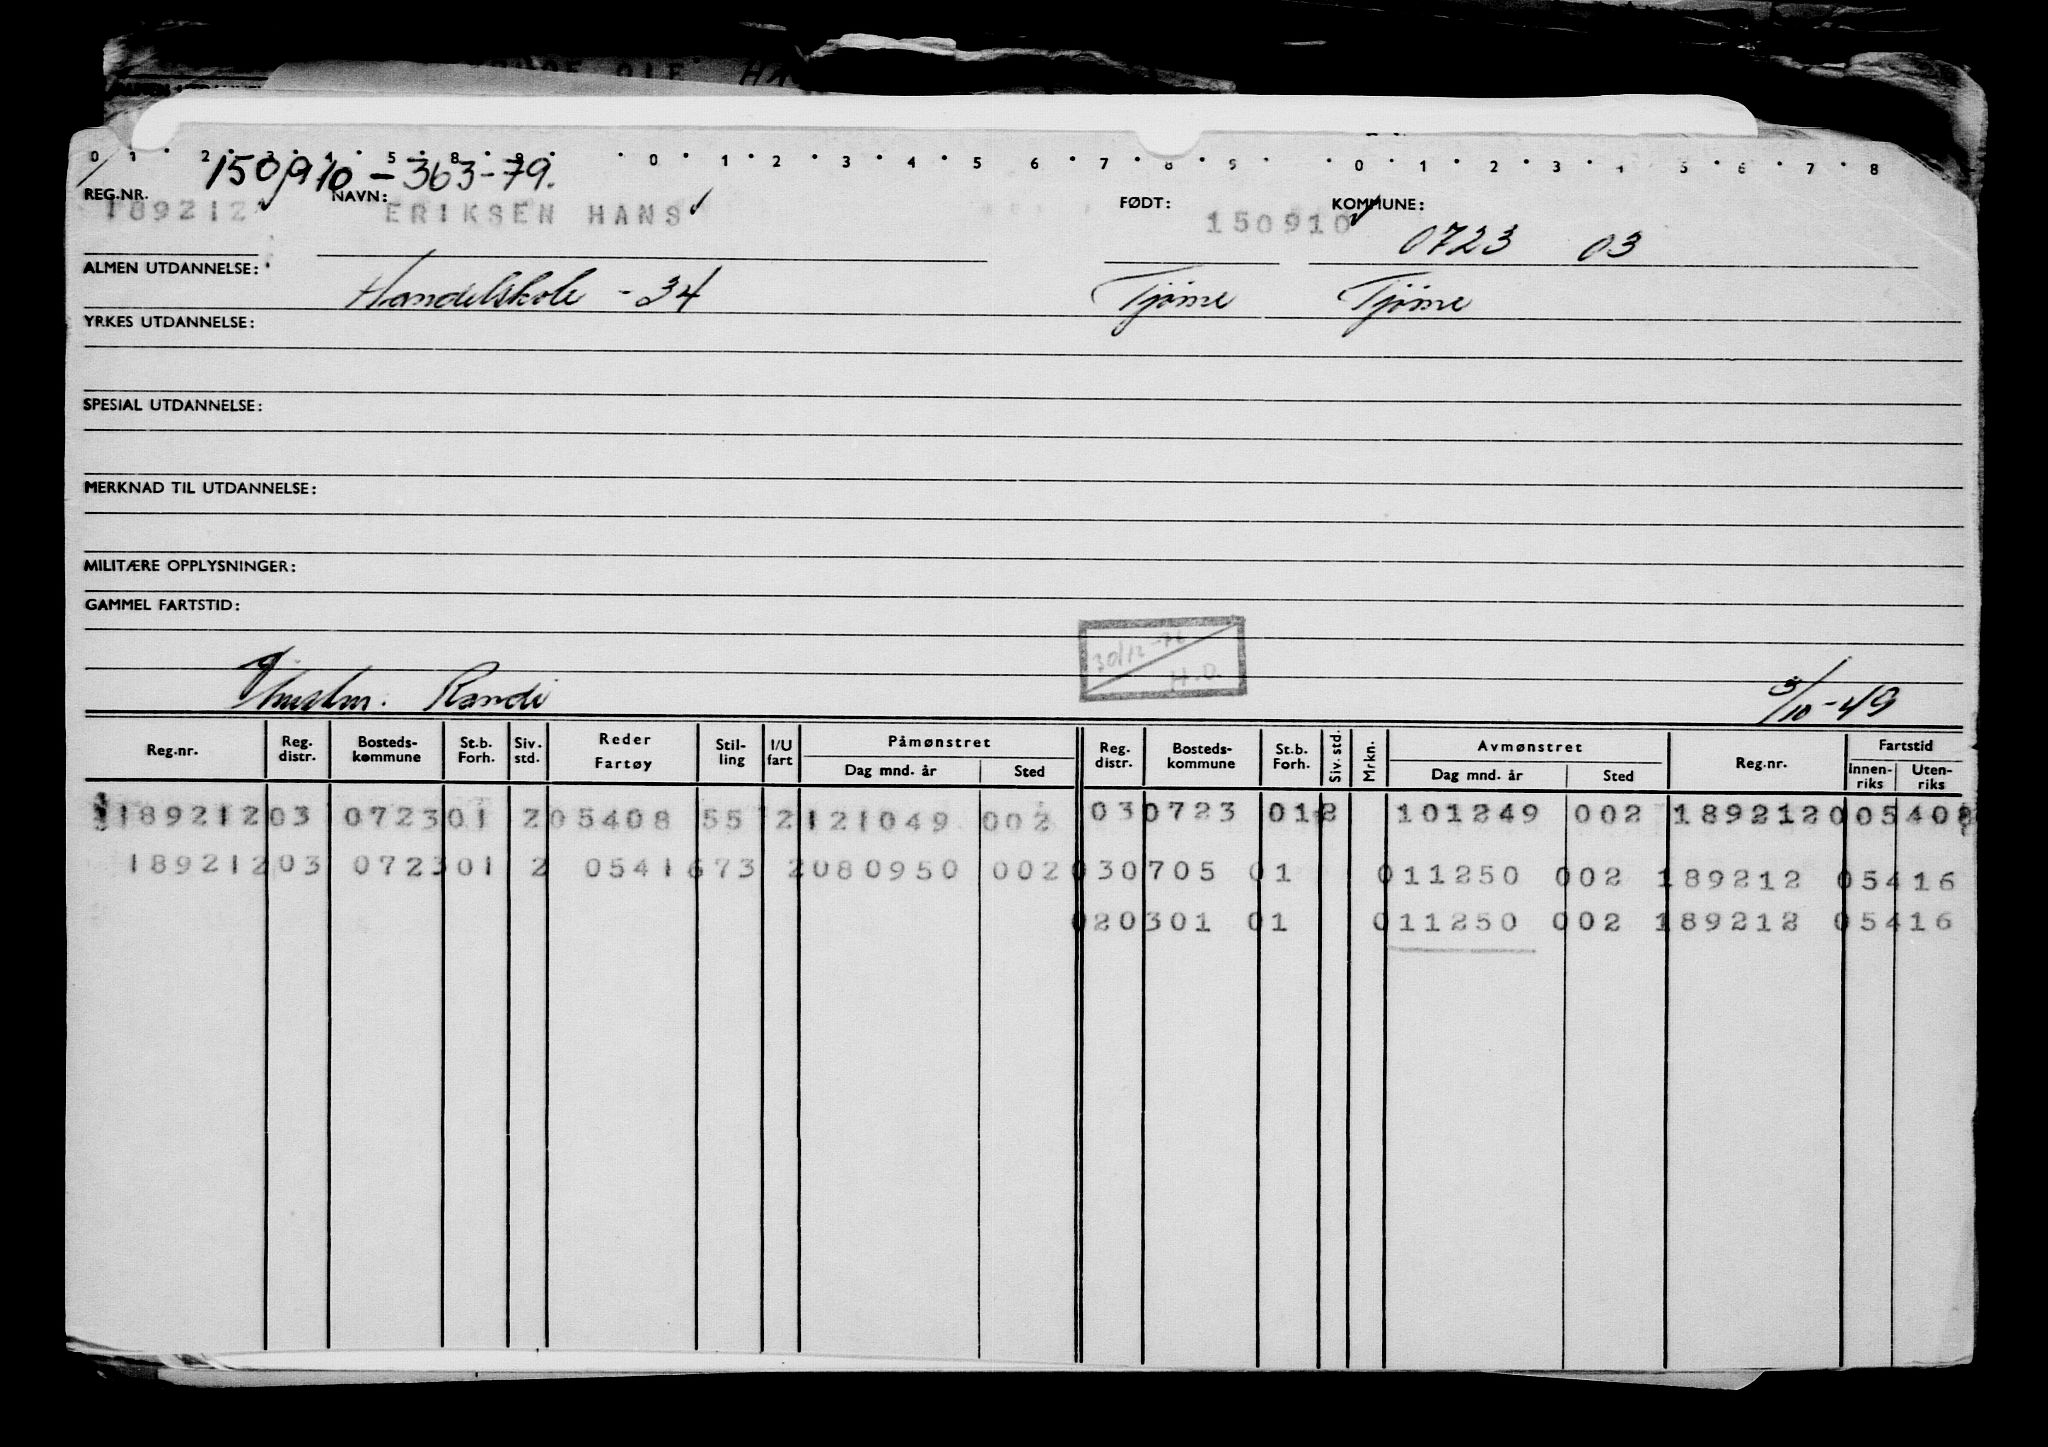 REG.NR. 150910 - 363 - 79. NAVN: FØDT: KOMMUNE:
189212 ERIKSEN HANS 150910 0723 03
ALMEN UTDANNELSE: Handelskole - 34 Tjöme Tjöme
YRKES UTDANNELSE:
SPESIAL UTDANNELSE:
MERKNAD TIL UTDANNELSE:
MILITÆRE OPPLYSNINGER:
GAMMEL FARTSTID:
30/12
H.O.
Hustru. Randi 3/10 - 49
Reg.nr. Reg. distr. Bosteds-kommune St.b. Forh. Siv. std. Reder Fartøy Stil-ling I/U fart Påmønstret Dag mnd. år Sted Reg. distr. Bosteds-kommune St.b. Forh. Siv. std. Mrkn. Avmønstret Dag mnd. år Sted Reg.nr. Fartstid Innen-riks Uten-riks
189212 03 0723 01 2 05408 55 2 121049 002 03 0723 01 2 101249 002 189212 0 05408
189212 03 0723 01 2 05416 73 2 080950 002 03 0705 01 011250 002 189212 05416
02 0301 01 011250 002 189212 05416